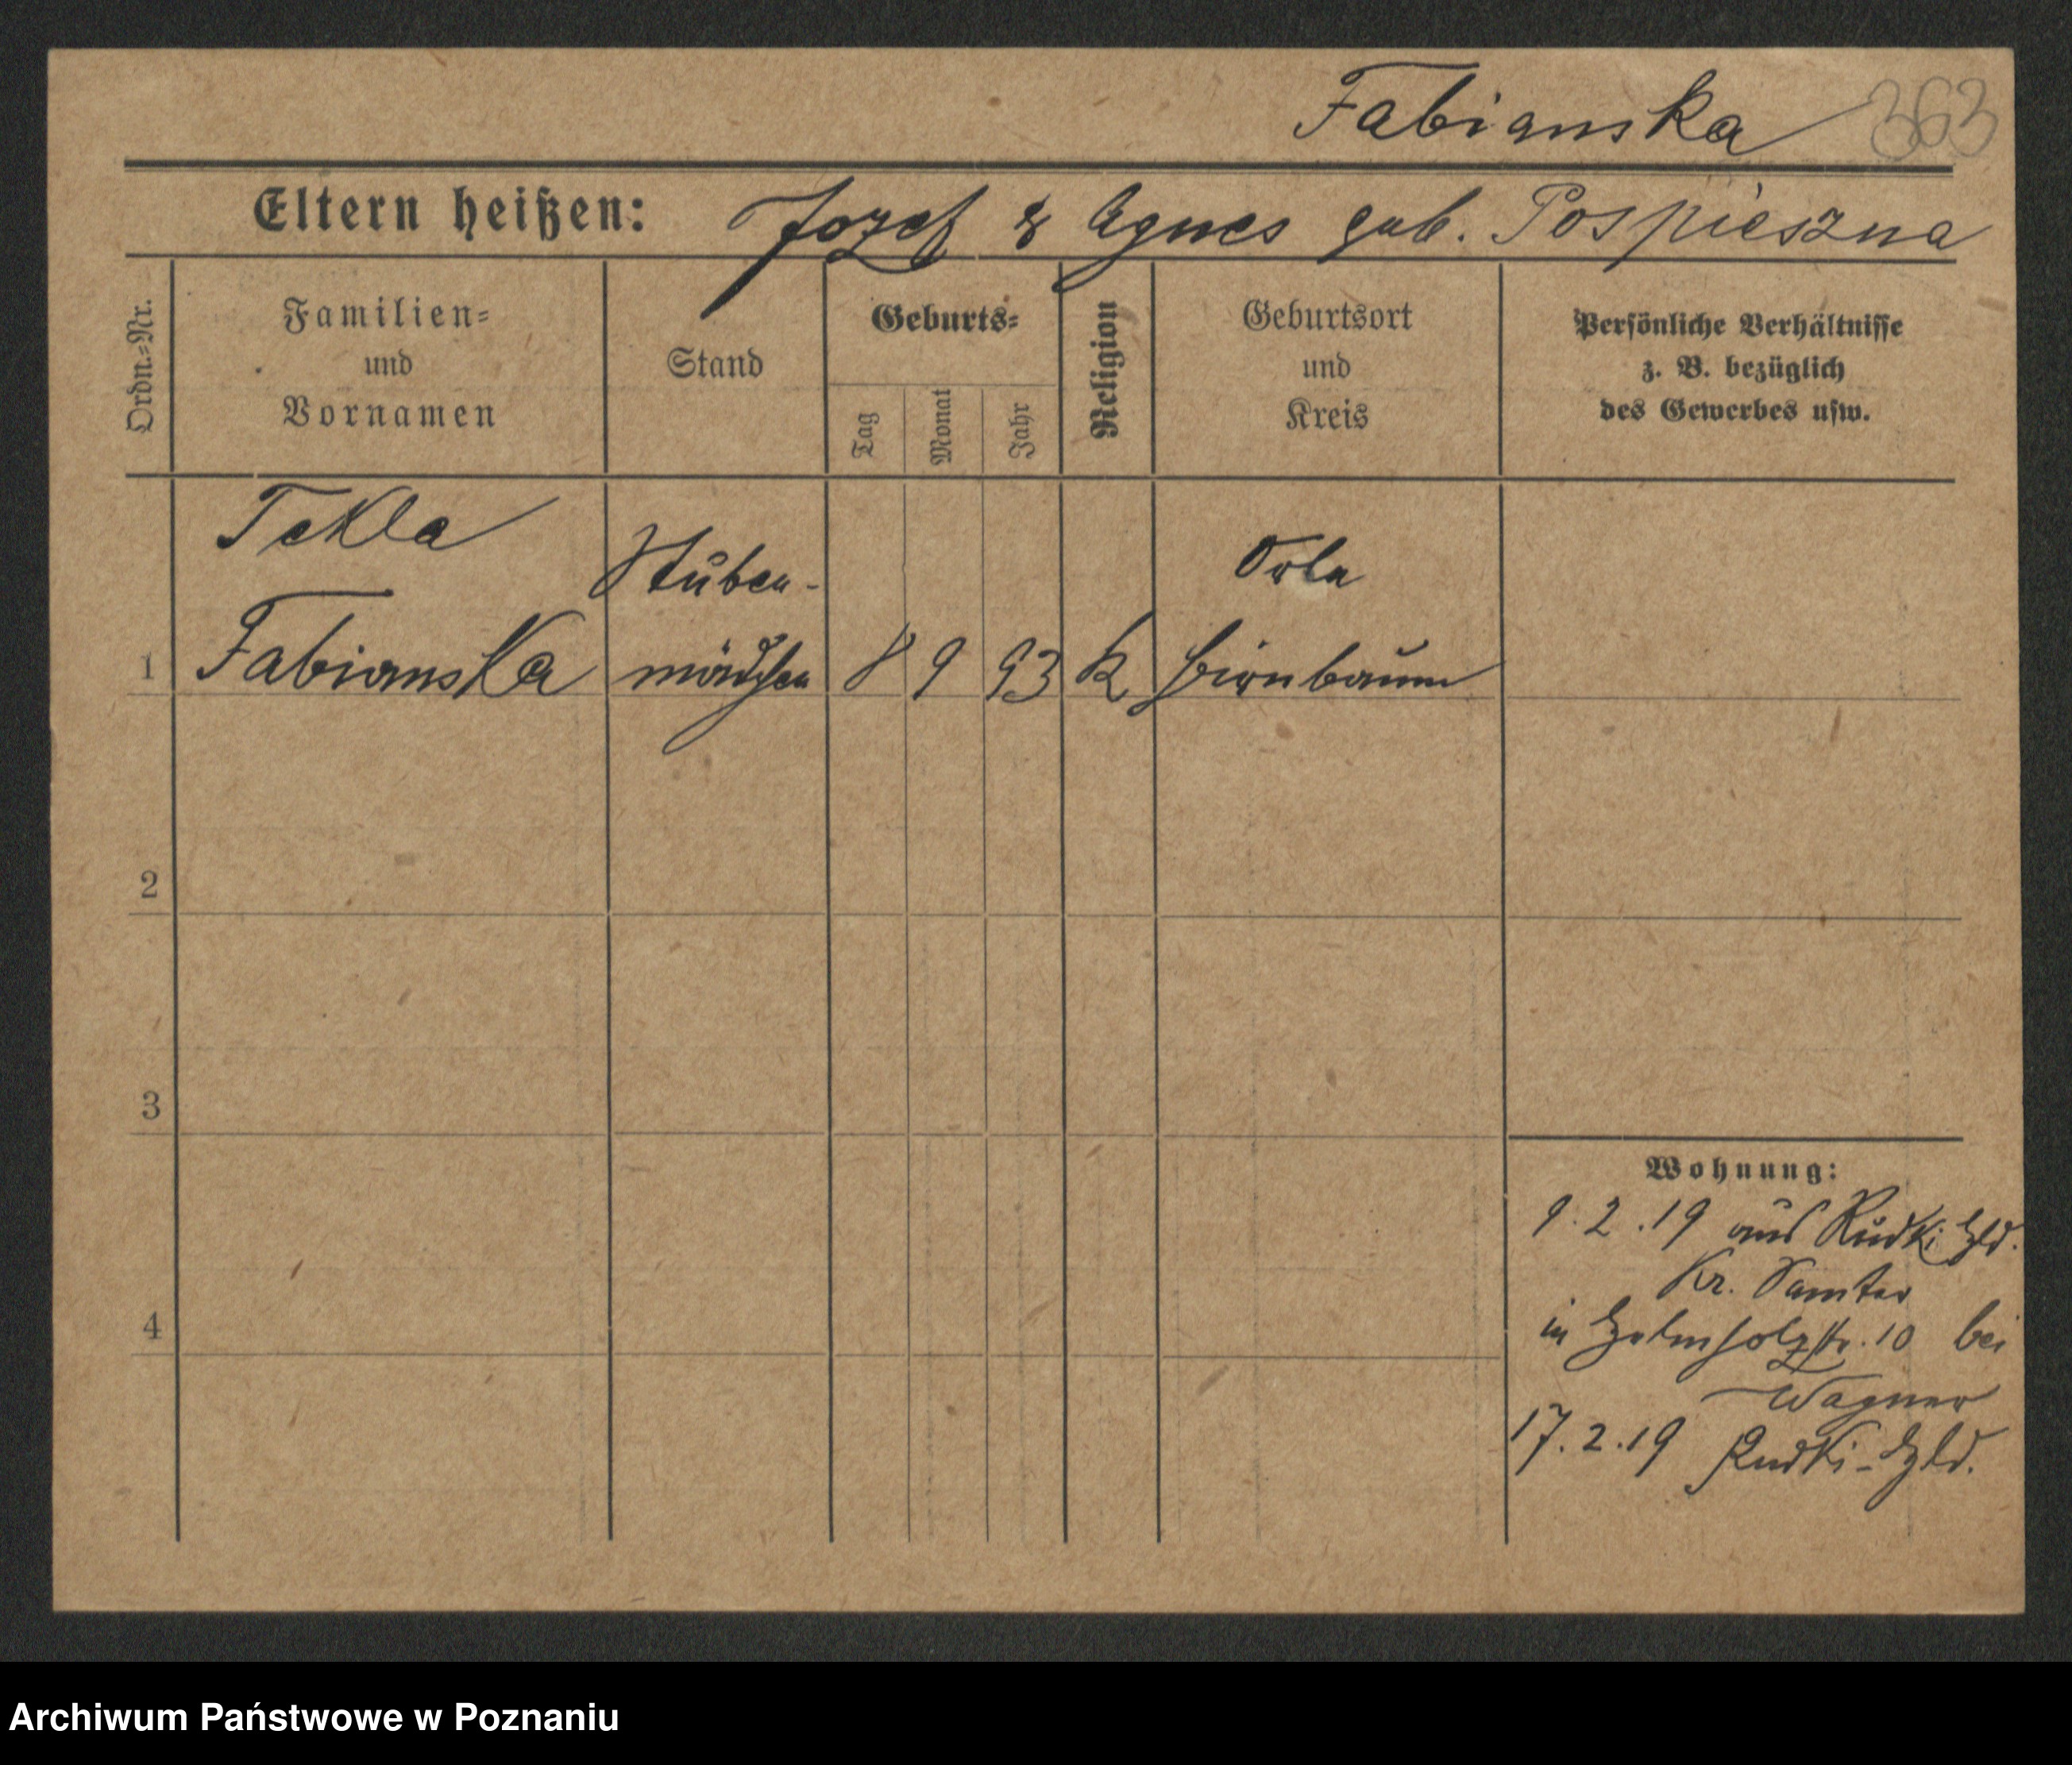 Fabianska 363
Eltern heißen: Jozef & Agnes geb. Pospieszna
Ordn.=Nr.
Familien=
und
Vornamen
Stand
Geburts=
Tag
Monat
Jahr
Religion
Geburtsort
und
Kreis
Persönliche Verhältnisse
z. B. bezüglich
des Gewerbes usw.
Tekla
Stuben-
1 Fabianska mädchen 8 9 93 K Birnbaum
2
3
4
Wohnung:
9.2.19 aus Rudki
Kr. Samter
in Helmholzstr. 10 bei
Wagner
17.2.19 Rudki-
Archiwum Państwowe w Poznaniu